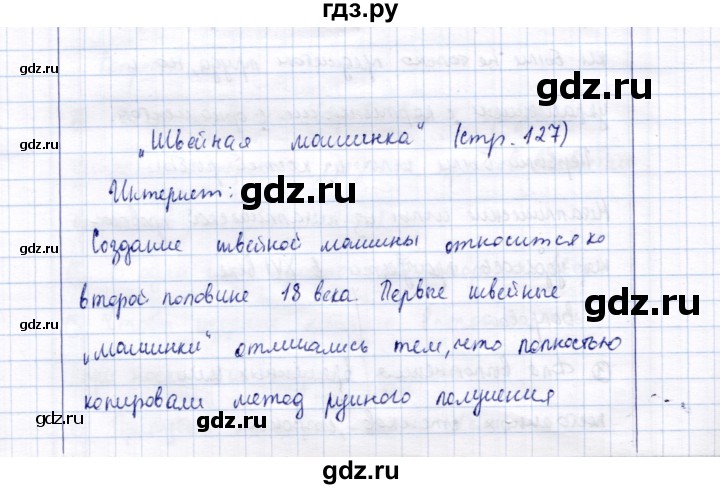 гдз.ру
gdz.ru
gdz.ru
gdz.ru
„Швейная машинка" (стр. 127)
gdz.ru
Интернет:
gdz.ru
Создание швейной машины относится ко
gdz.ru
второй половине 18 века. Первые швейные
gdz.ru
„машинки" отличались тем, что полностью
копировали метод ручного получения
gdz.ru
gdz.ru
gdz.ru
gdz.ru